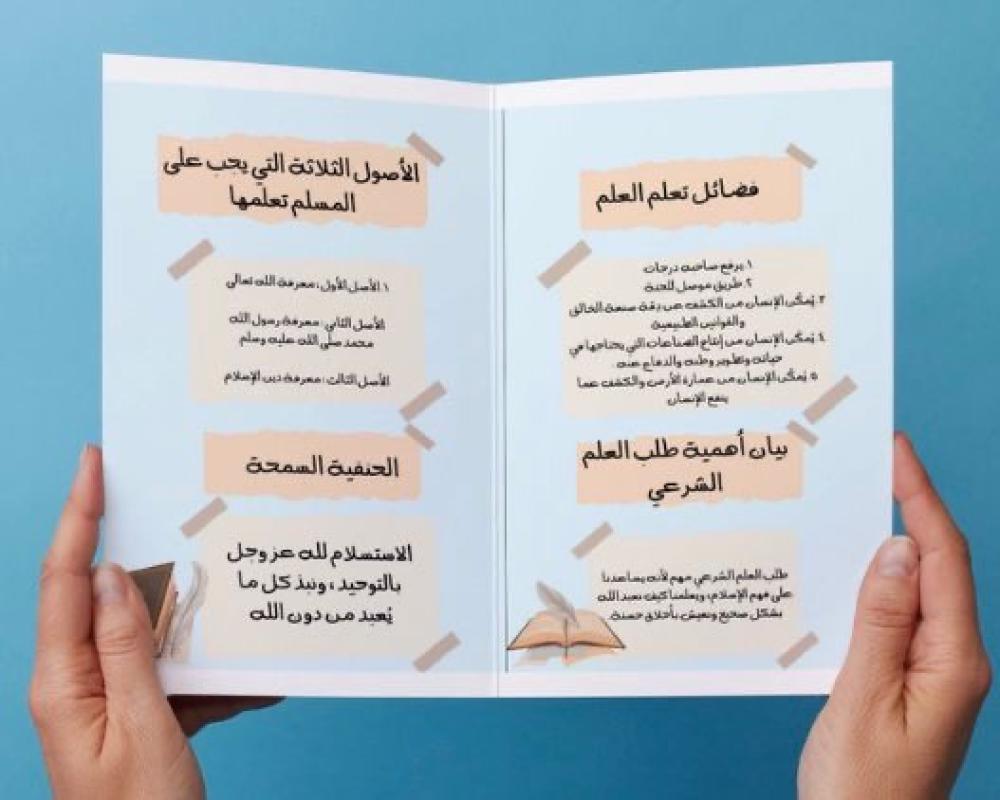 فضائل تعلم العلم
١. يرفع صاحبه درجات
٢. طريق موصل للجنة
٣. يُمكّن الإنسان من الكشف عن دقة صنعة الخالق
والقوانين الطبيعية
٤. يُمكّن الإنسان من إنتاج الصناعات التي يحتاجها في
حياته وتطوير وطنه والدفاع عنه
٥. يُمكّن الإنسان من عمارة الأرض والكشف عما
ينفع الإنسان
بيان أهمية طلب العلم
الشرعي
طلب العلم الشرعي مهم لأنه يساعدنا
على فهم الإسلام، ويعلمنا كيف نعبد الله
بشكل صحيح ونعيش بأخلاق حسنة.
الأصول الثلاثة التي يجب على
المسلم تعلمها
١. الأصل الأول: معرفة الله تعالى
الأصل الثاني: معرفة رسول الله
محمد صلّى الله عليه وسلم
الأصل الثالث: معرفة دين الإسلام
الحنفية السمحة
الاستسلام لله عز وجل
بالتوحيد، ونبذ كل ما
يُعبد من دون الله